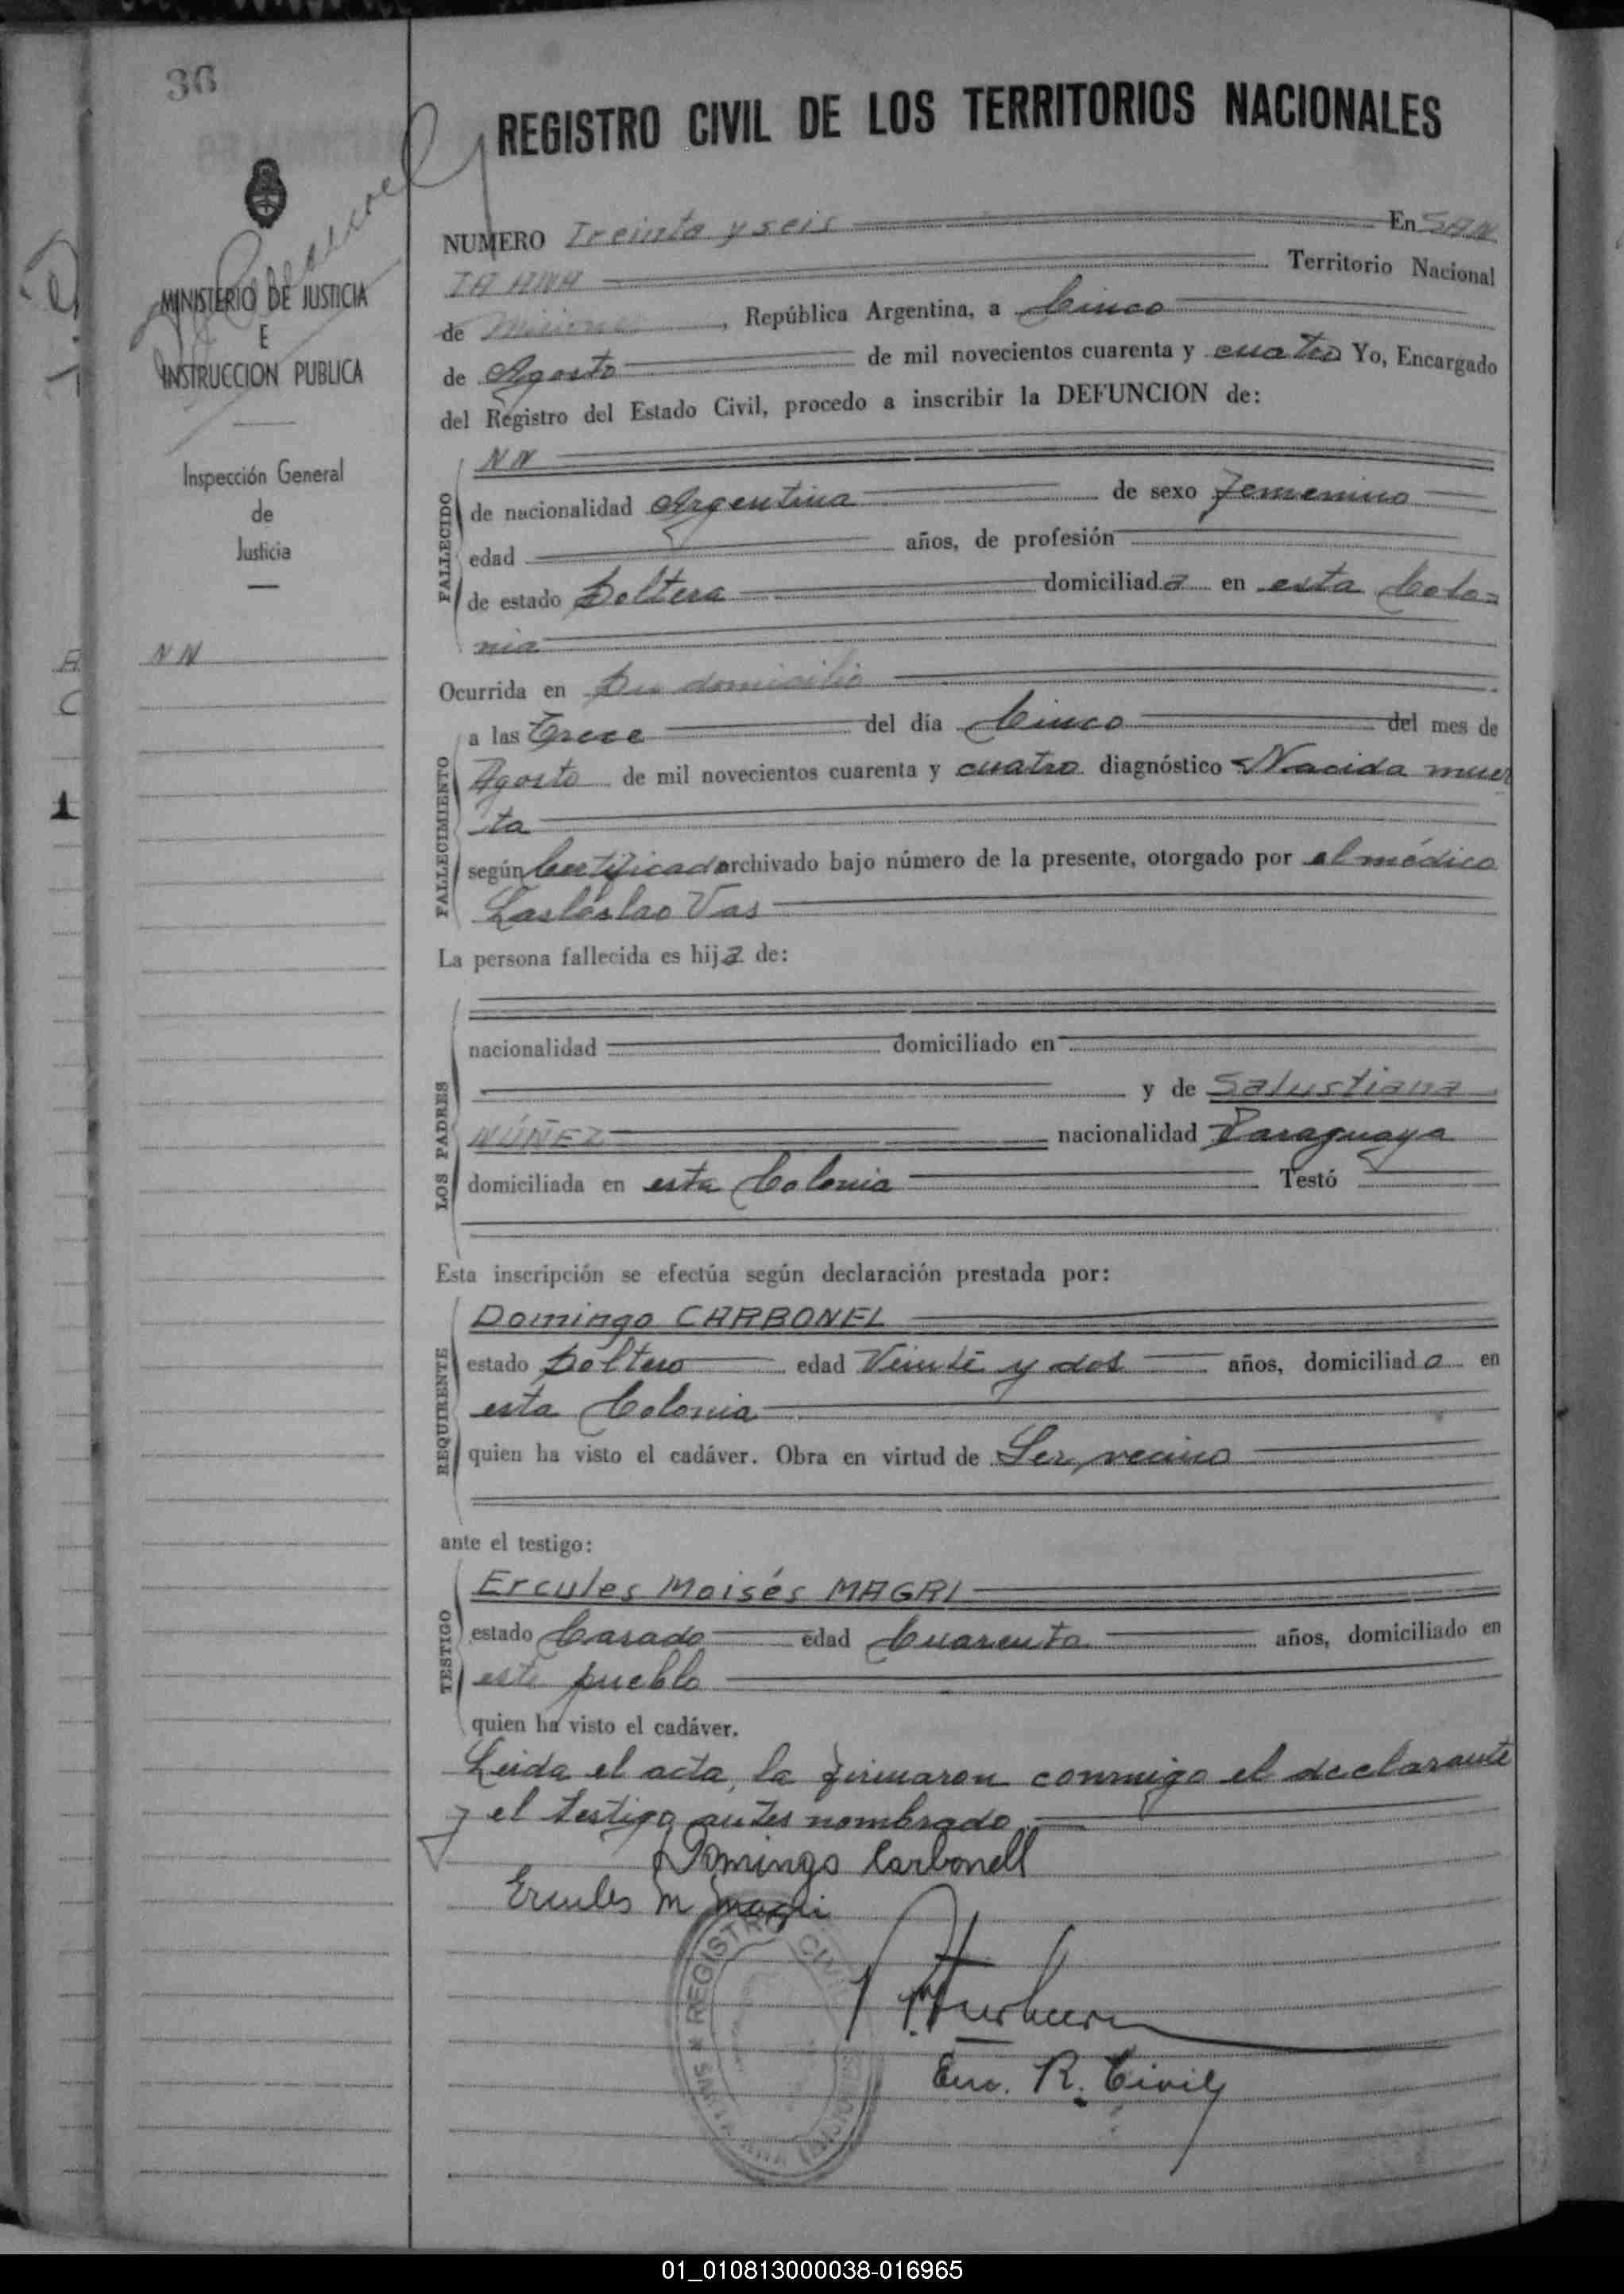 36
REGISTRO CIVIL DE LOS TERRITORIOS NACIONALES
MINISTERIO DE JUSTICIA
E
INSTRUCCION PUBLICA
Inspección General
de
Justicia
NN
NUMERO Treinta y seis En SAN
TA ANA Territorio Nacional
de Misiones, República Argentina, a Cinco
de Agosto de mil novecientos cuarenta y cuatro Yo, Encargado
del Registro del Estado Civil, procedo a inscribir la DEFUNCION de:
FALLECIDO
NN
de nacionalidad Argentina de sexo Femenino
edad años, de profesión
de estado Soltera domiciliada en esta Colo=
nia
Ocurrida en Su domicilio
FALLECIMIENTO
a las Trece del día Cinco del mes de
Agosto de mil novecientos cuarenta y cuatro diagnóstico Nacida muer
ta
según Certificado archivado bajo número de la presente, otorgado por el médico
Lasloslao Vas
La persona fallecida es hija de:
LOS PADRES
nacionalidad domiciliado en
y de Salustiana
NÚÑEZ nacionalidad Paraguaya
domiciliada en esta Colonia Testó
Esta inscripción se efectúa según declaración prestada por:
REQUIRENTE
Domingo CARBONEL
estado Soltero edad Veinte y dos años, domiciliado en
esta Colonia
quien ha visto el cadáver. Obra en virtud de Ser vecino
ante el testigo:
TESTIGO
Ercules Moisés MAGRI
estado Casado edad Cuarenta años, domiciliado en
este pueblo
quien ha visto el cadáver.
Leida el acta, la firmaron conmigo el declarante
y el testigo antes nombrado
Domingo Carbonell
Ercules M Magri
REGISTRO CIVIL
SANTA ANA (MISIONES)
Enc. R. Civil
01_010813000038-016965